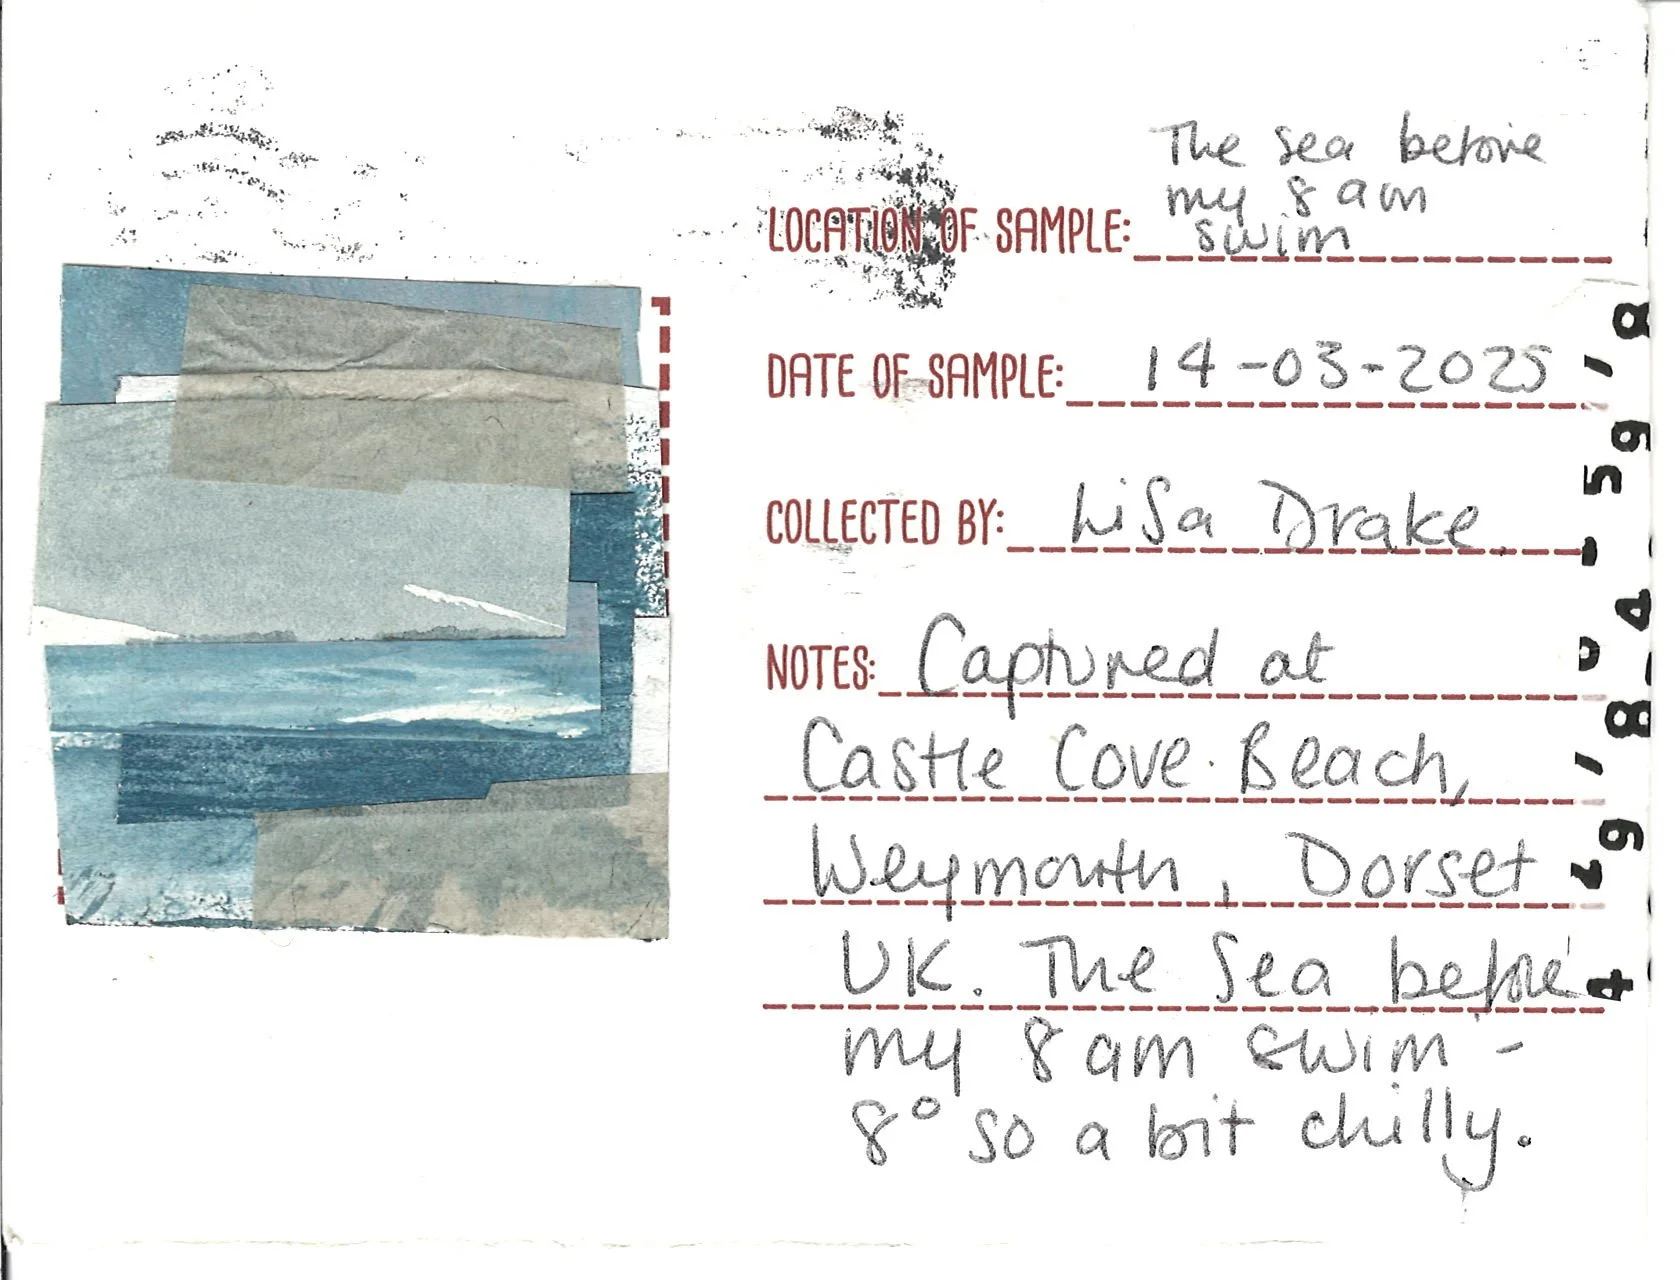 The sea before
my 8 am
LOCATION OF SAMPLE: swim
DATE OF SAMPLE: 14-03-2025
COLLECTED BY: Lisa Drake.
NOTES: Captured at
Castle Cove Beach,
Weymouth, Dorset
UK. The Sea before
my 8 am swim -
8° so a bit chilly.